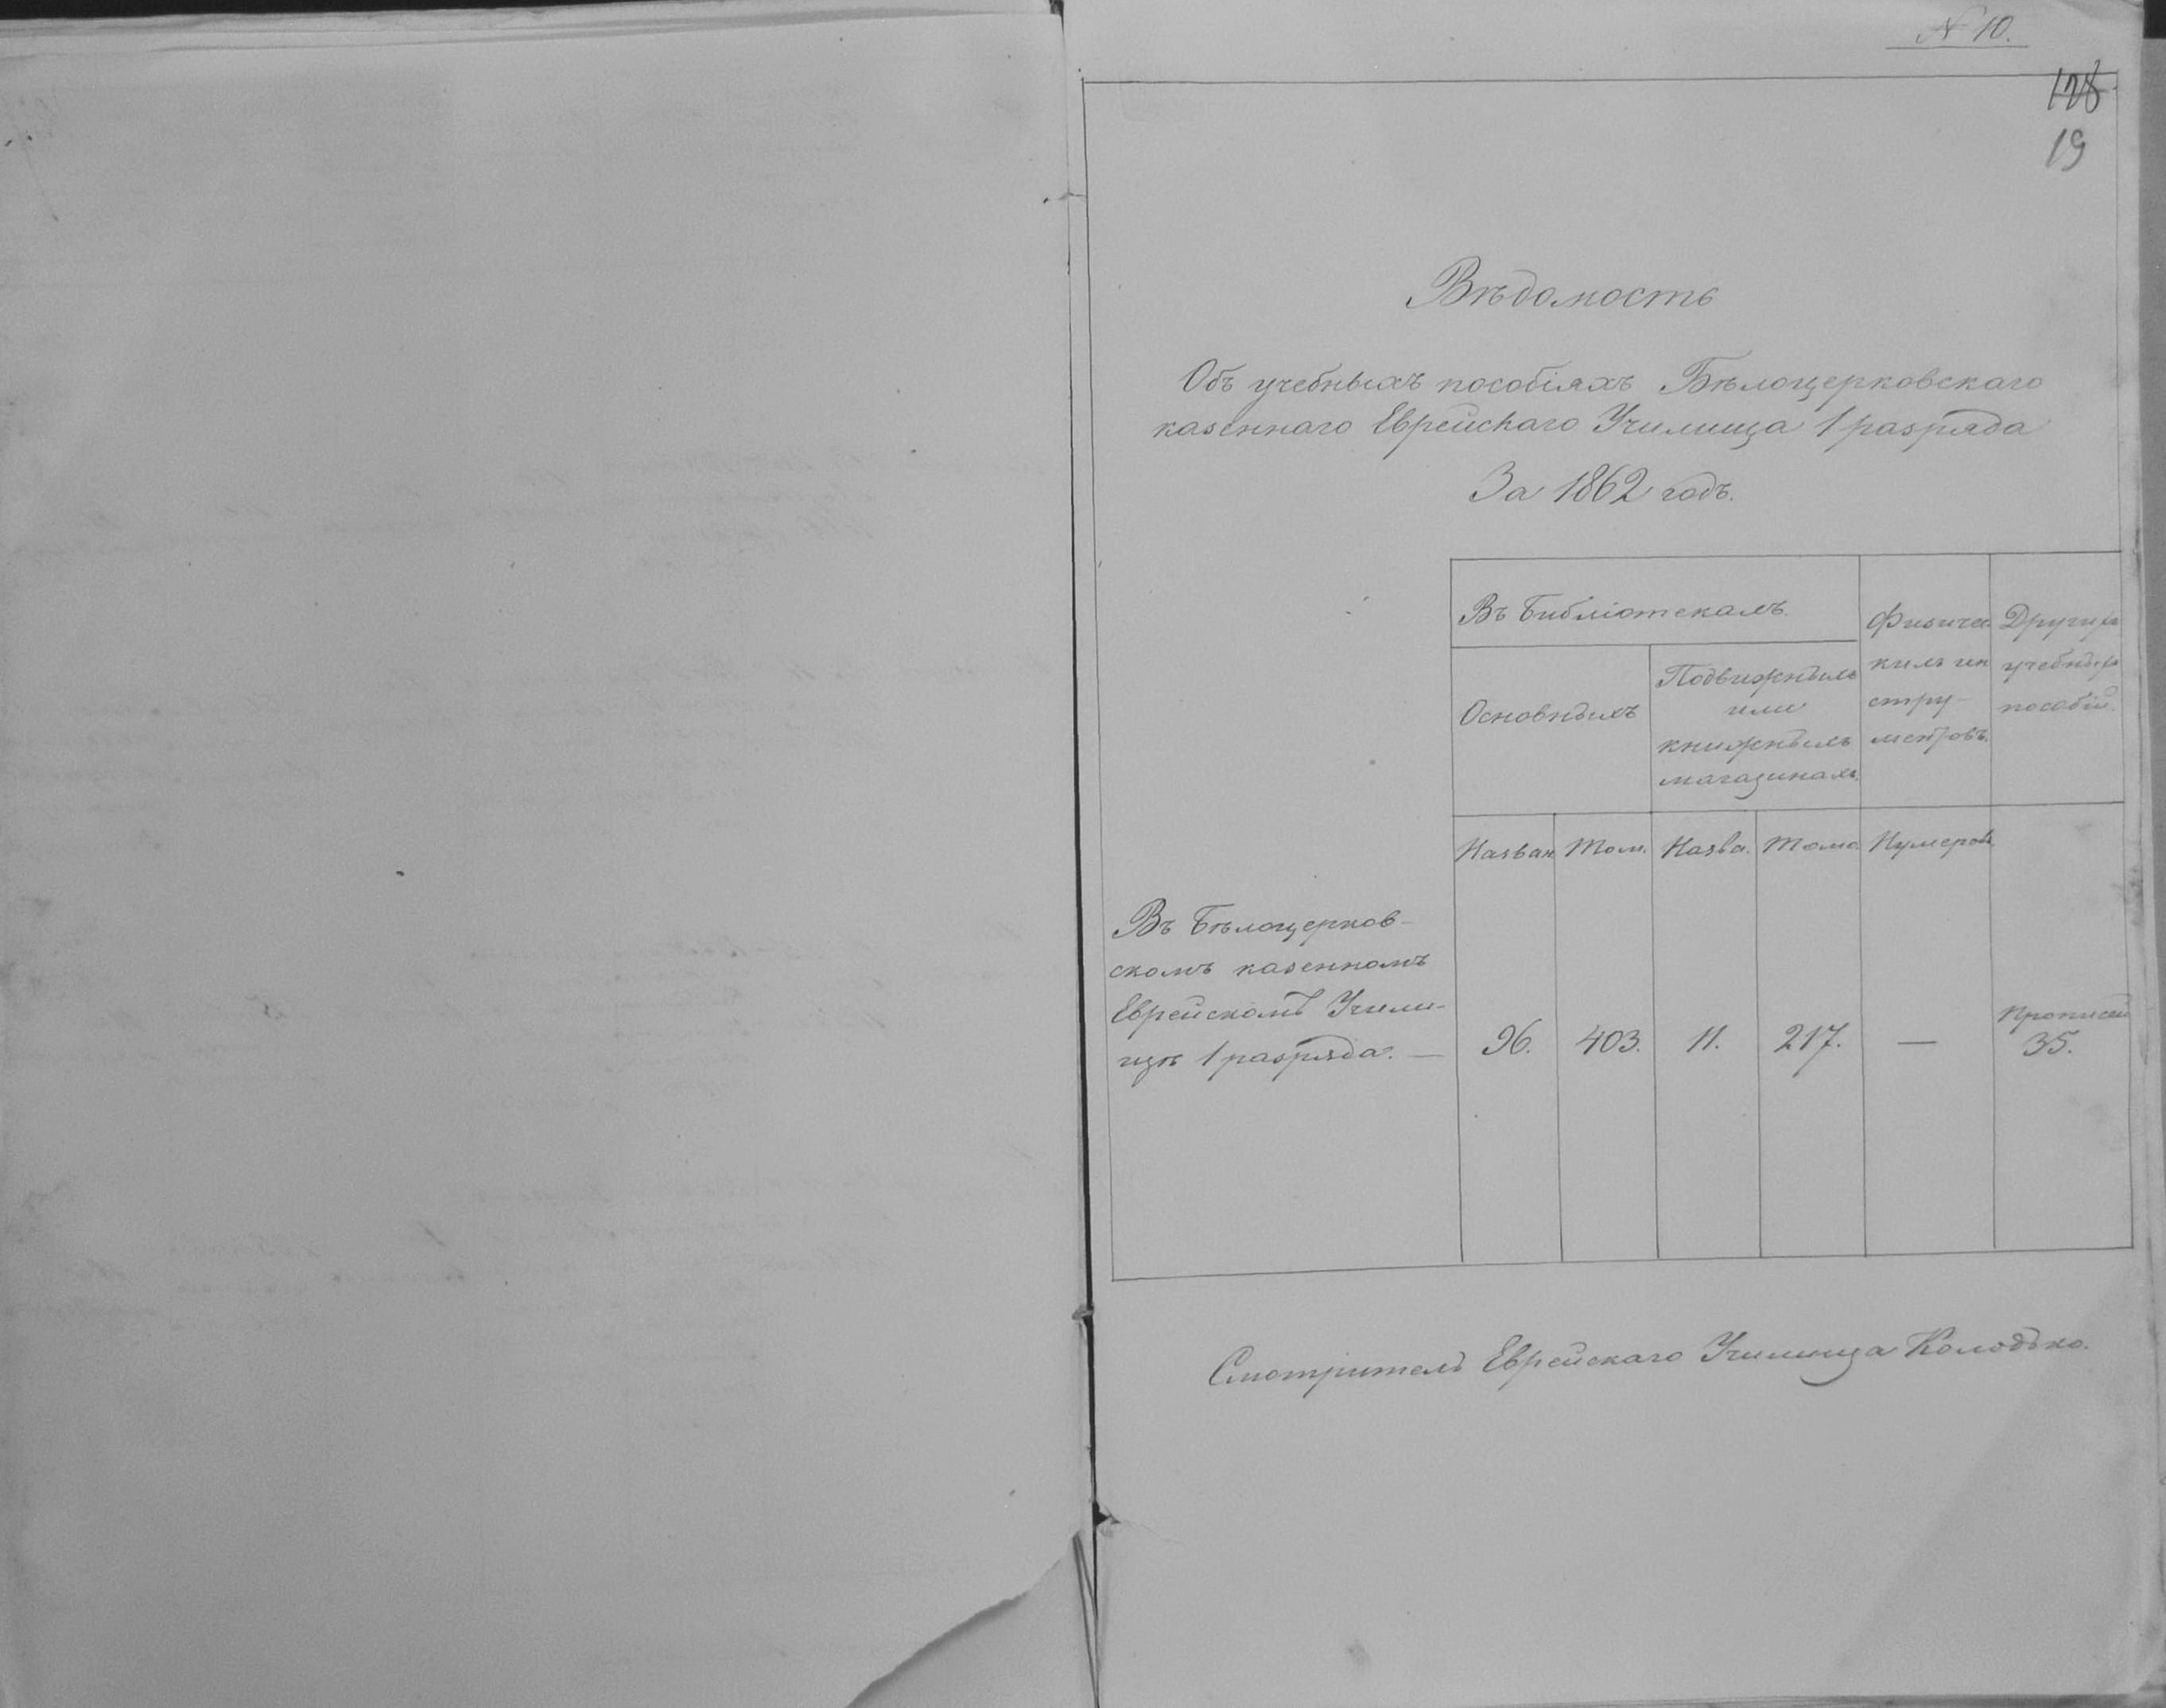 N 10.
128
19
Вѣдомость
Объ учебныхъ пособіяхъ Бѣлоцерковскаго
казеннаго Еврейскаго Училища 1 разряда
За 1862 годъ.
Въ библіотекахъ.
Основныхъ
Подвижныхъ
или
книжныхъ
магазинахъ.
Физичес
кихъ ин
стру-
ментовъ.
Другихъ
учебныхъ
пособій.
Назван. Том. Назва. Томо. Нумеровъ
Въ Бѣлоцерков-
скомъ казенномъ
Еврейскомъ Учили-
щѣ 1 разряда. — 96. 403. 11. 217. — Прописей 35.
Смотритель Еврейскаго Училища Колодько.